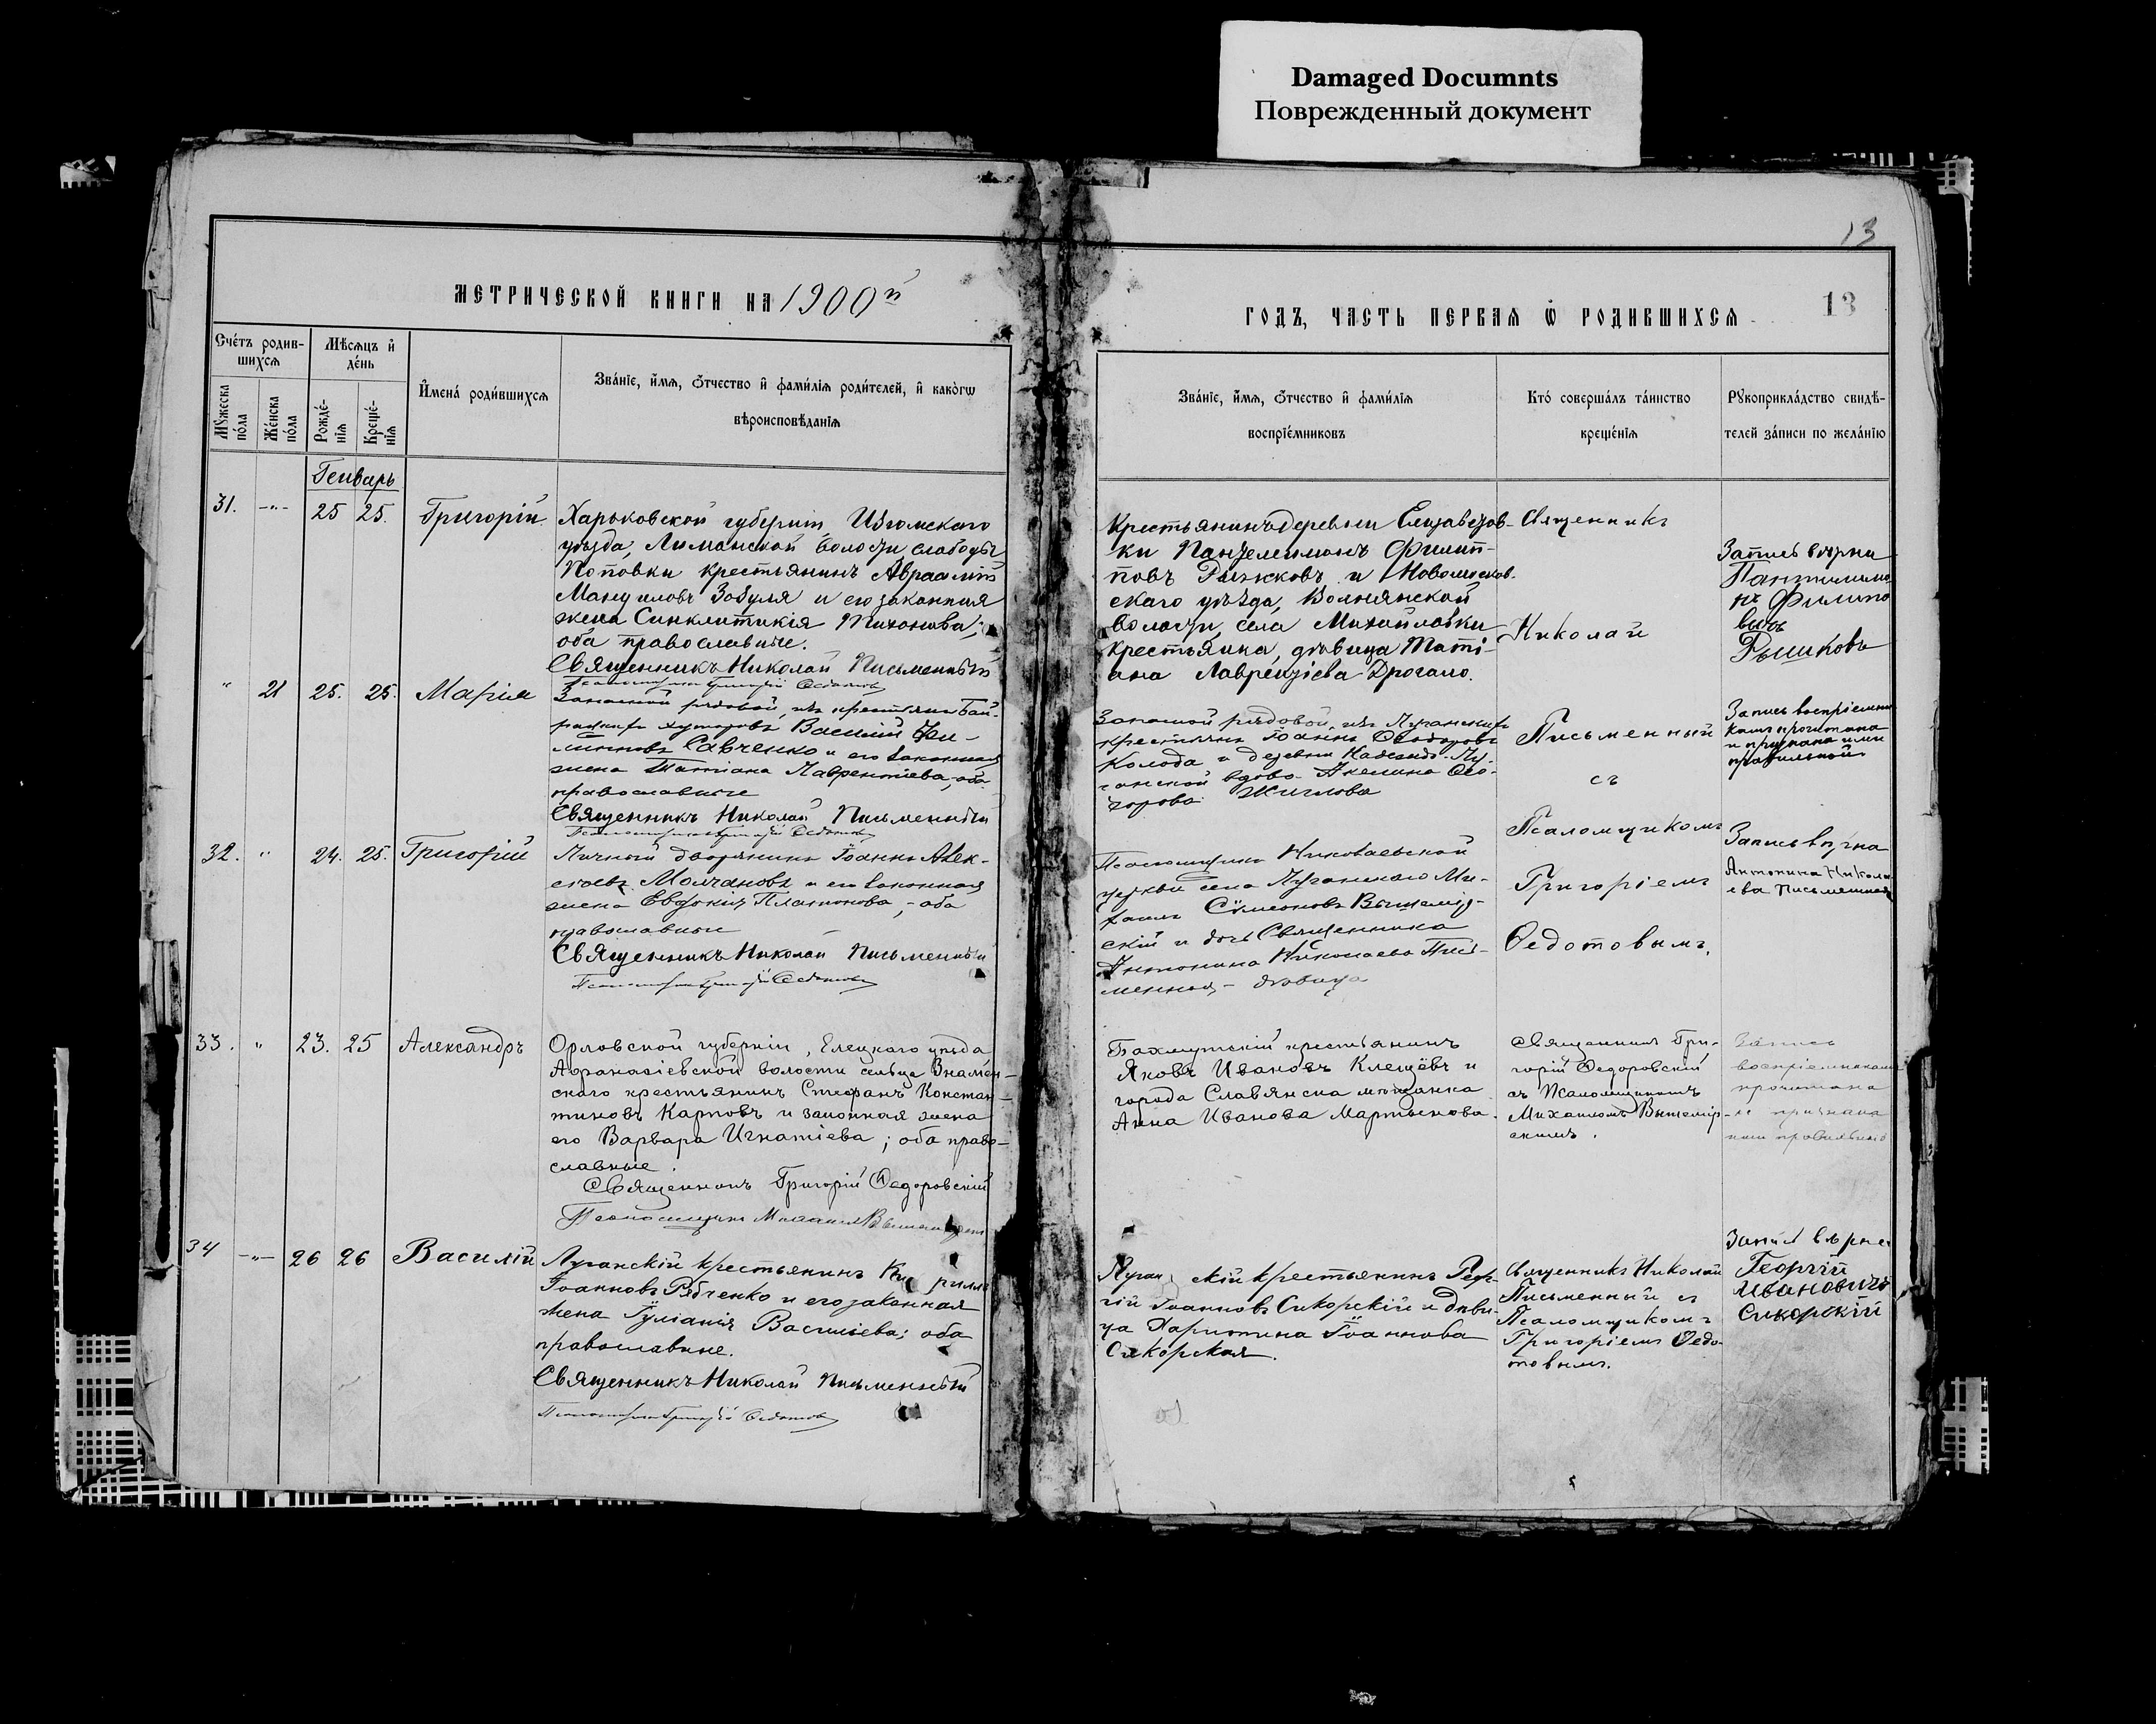 Damaged Documnts
Поврежденный документ
13
МЕТРИЧЕСКОЙ КНИГИ НА 1900й
ГОДЪ, ЧАСТЬ ПЕРВАЯ Ѡ РОДИВШИХСЯ
13
Счетъ родив-
шихся
Мѣсяцъ и
день
Мужеска
пола
Женска
пола
Рожде-
нія
Креще-
нія
Имена родившихся
Званіе, имя, отчество и фамилія родителей, и какогѡ
вѣроисповѣданія
Званіе, имя, отчество и фамилія
воспріемниковъ
Кто совершалъ таинство
крещенія
Рукоприкладство свидѣ-
телей записи по желанію
Генварь
31.
25 25.
Григорій.
Харьковской губерніи, Изюмскаго
уѣзда, Лиманской волости, слободы
Поповки крестьянинъ Авраамій
Мануиловъ Зозуля и его законная
жена Синклитикія Тихонова;
оба православные.
Священникъ Николай Письменный
Псаломщикъ Григорій Ѳедотовъ
Крестьянинъ деревни Елизаветов-
ки Пантелимонъ Филип-
повъ Рыжковъ и Новомосков-
скаго уѣзда, Волнянской
волости, села Михайловки
крестьянка, дѣвица Таті-
ана Лаврентіева Дрогало.
Священникъ
Николай
Письменный
съ
Псаломщикомъ
Григоріемъ
Ѳедотовымъ.
Запись вѣрна
Пантилимо
нъ Филипо
вичъ
Рышковъ
" 21 25. 25. Марія
Запасной рядовой, изъ крестьянъ Бай-
хуторовъ, Василій
Савченко и его законная
жена Татіана Лаврентіева, оба
православные
Священникъ Николай Письменный
Псаломщикъ Григорій Ѳедотовъ
Запасной рядовой изъ Луганскихъ
крестьянъ Іоаннъ Ѳеодоровъ
Колода и деревни Лу-
ганской вдова Акелина Ѳео-
дорова
Запись воспріемни
ками прочитана
и признана ими
правильной
32. " 24. 25. Григорій
Личный дворянинъ Іоаннъ Алек-
сѣевъ Молчановъ и его законная
жена Евдокія Платонова, - оба
православные
Священникъ Николай Письменный
Псаломщикъ Григорій Ѳедотовъ
Псаломщикъ Николаевской
церкви села Луганскаго Ми-
хаилъ Сѵмеоновъ Вышемір-
скій и дочь Священника
Антонина Николаева Пись-
менная, - дѣвица
Запись вѣрна
Антонина Никола-
ева Письменная
33. " 23. 25 Александръ
Орловской губерніи, Елецкаго уѣзда
Аѳанасіевской волости сельца Знамен-
скаго крестьянинъ Стефанъ Констан-
тиновъ Карповъ и законная жена
его Варвара Игнатіева; оба право-
славные.
Священникъ Григорій Ѳедоровскій
Псаломщикъ Михаилъ Вышемірскій
Бахмутскій крестьянинъ
Яковъ Ивановъ Клещёвъ и
города Славянска мѣщанка
Анна Иванова Мартынова.
Священникъ Гри-
горій Ѳедоровскій
съ Псаломщикомъ
Михаиломъ Вышемір-
скимъ.
Запись
воспріемниками
прочитана
и признана
ими правильной
34 26 26 Василій
Луганскій крестьянинъ Ки риллъ
Іоанновъ Рябченко и его законная
жена Іуліанія Васильева; оба
православные.
Священникъ Николай Письменный
Псаломщикъ Григорій Ѳедотовъ
Луган скій крестьянинъ Геор-
гій Іоанновъ Сикорскій и дѣви-
ца Харитина Іоаннова
Сикорская.
Священникъ Николай
Письменный съ
Псаломщикомъ
Григоріемъ Ѳедо-
товымъ.
Запись вѣрна
Георгій
Ивановичъ
Сикорскій